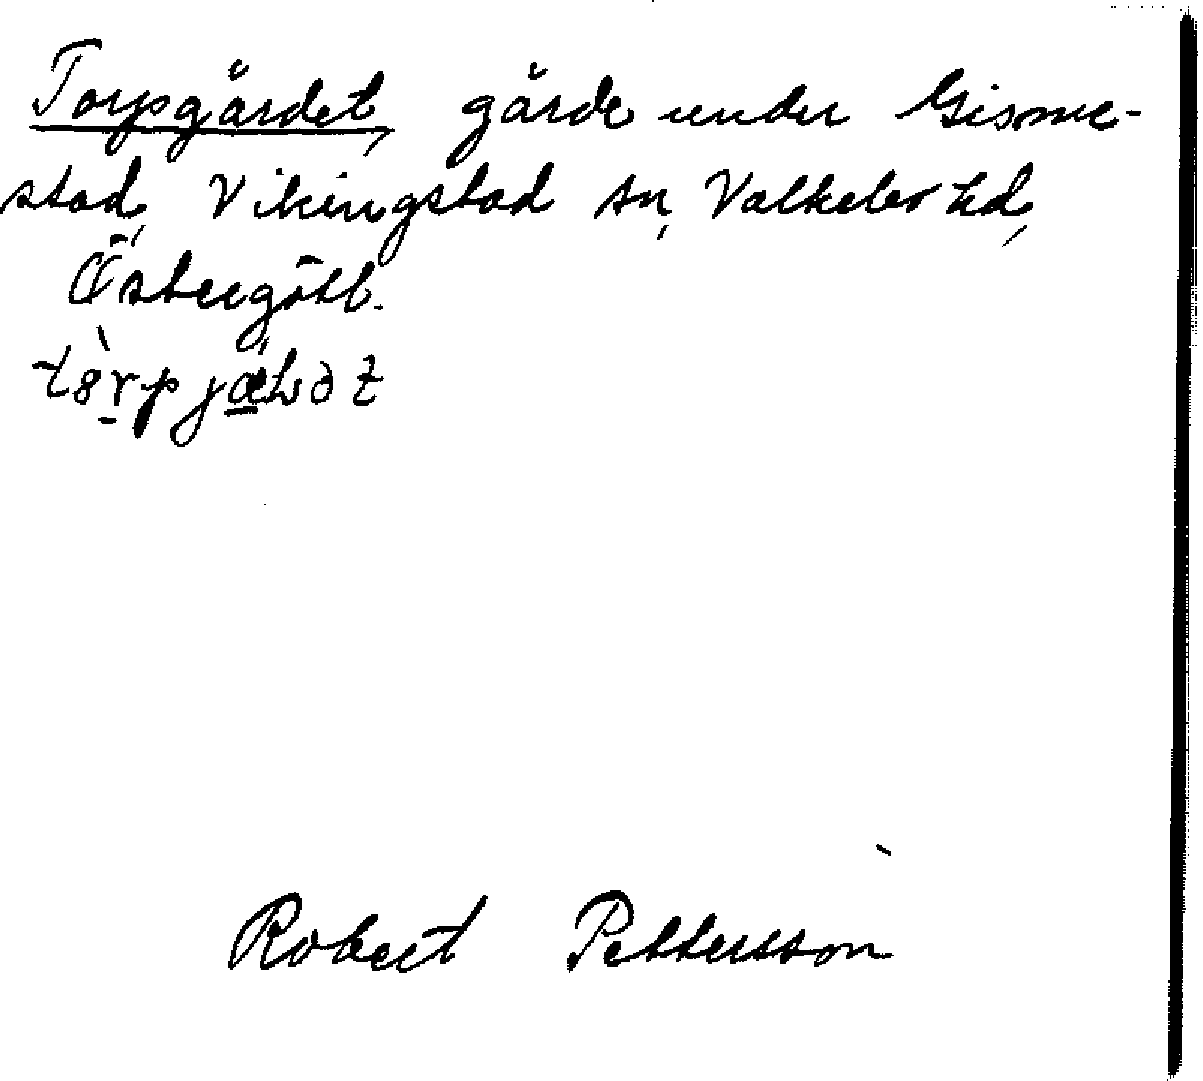 Torpgärdet, gärde under Gisme-
stad, Vikingstad sn, Valkebo hd,
Östergötl.
Robert Pettersson